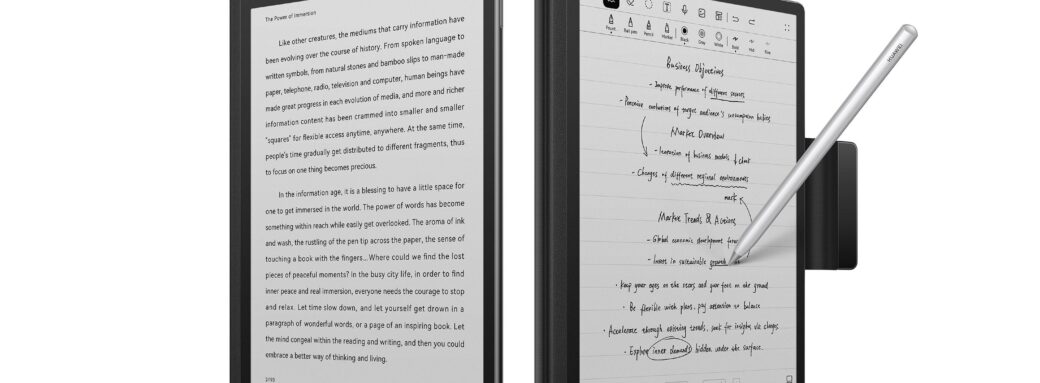 The Power of Immersion
Like other creatures, the mediums that carry information have
been evolving over the course of history. From spoken language to
written symbols, from natural stones and bamboo slips to man-made
paper, telephone, radio, television and computer, human beings have
made great progress in each evolution of media, and more and richer
information content has been crammed into smaller and smaller
"squares" for flexible access anytime, anywhere. At the same time,
people's time gradually get distributed to different fragments, thus
to focus on one thing becomes precious.
In the information age, it is a blessing to have a little space for
one to get immersed in the world. The power of words has become
something within reach while easily get overlooked. The aroma of ink
and wash, the rustling of the pen tip across the paper, the sense of
touching a book with the fingers... Where could we find the lost
pieces of peaceful moments? In the busy city life, in order to find
inner peace and real immersion, everyone needs the courage to stop
and relax. Let time slow down, and let yourself get drown in a
paragraph of wonderful words, or a page of an inspiring book. Let
the mind congeal within the reading and writing, and then you could
embrace a better way of thinking and living.
Ball pen Pencil Marker Black Gray White Bold
Business Objectives
- Improve performance of different sectors
- Perceive evaluations of target audience's consumption habits
Market Overview
- Iteration of business models ↓ chart
- Changes of different regional environments
mark
Market Trends & Actions
- Global economic development
- Invest in sustainable growth
· Keep your eyes on the stars and your feet on the ground
· Be flexible with plans, pay attention to balance
· Accelerate through opening trends, seek for insights via changes
- Explore inner demands hidden under the surface.
HUAWEI